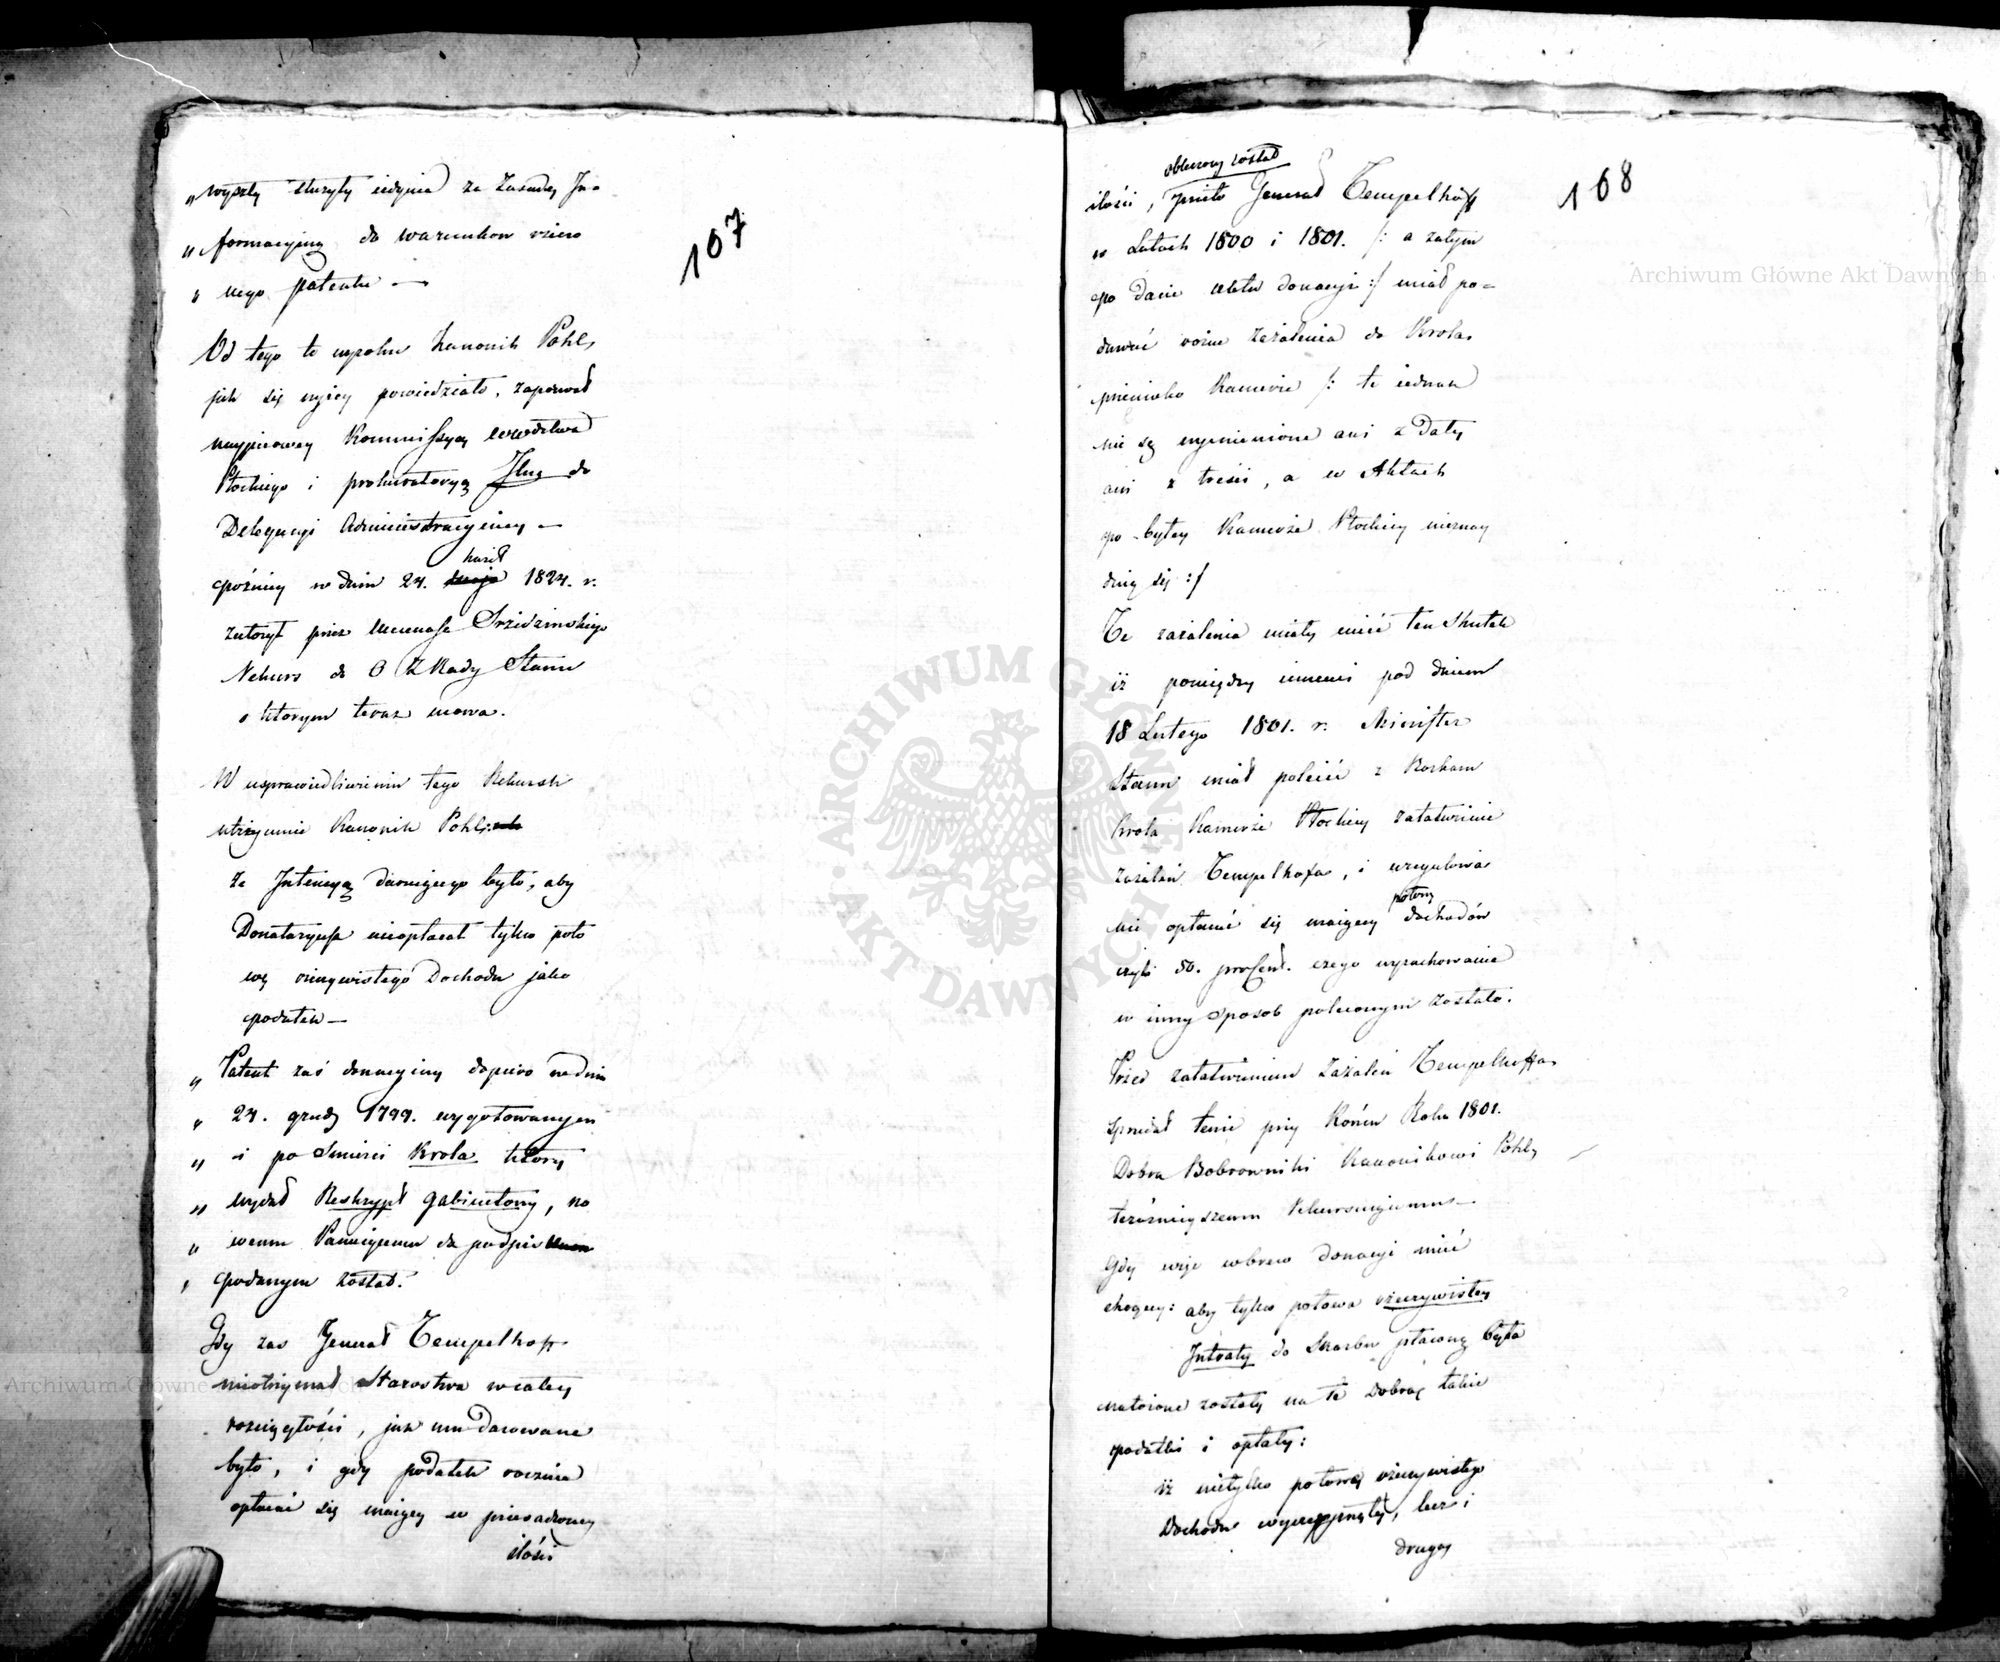 107
„ wyszły służyły iedynie za Zasadę In=
„ formacyjną do warunkow rzeczo
„ nego patentu —
Od tego to wyroku Kanonik Pohl,
jak się wyżey powiedziało, zapozwał
naypierwey Kommissyą Wdztwa
Płockiego i prokuratoryą Jlną do
Delegacyi Administracyiney —
poźniey w dniu 24. kwiet 1824. r.
założył przez Mecenasa
Rekurs do O Z Rady Stanu
o ktorym teraz mowa.
W usprawiedliwieniu tego Rekursu
utrzymuie Kanonik Pohl:
że Intencyą daruiącego było, aby
Donataryusz nieopłacał tylko poło
wę rzeczywistego Dochodu jako
podatek —
„ Patent zaś donacyiny dopiero w dniu
„ 24. grud 1799. wygotowanym
„ i po śmierci Krola ktory
„ wydał Reskrypt gabinetowy, no
„ wemu Panuiącemu do podpisu
„ podanym został.
Gdy zas Generał Tempelhoff
nieotrzymał Starostwa w całey
rozciągłości, jak mu darowane
było, i gdy podatek rocznie
opłacać się maiący w przesadzoney
ilości
108
obliczony został
ilości, przeto Generał Tempelhoff
w Latach 1800 i 1801. /: a zatym
po dacie aktu donacyi :/ miał po=
dawać rozne zażalenia do Krola
przeciwko Kamerze /: te iednak
nie są wymienione ani z Daty
ani z treści, a w Aktach
po byłey Kamerze Płockiey nieznay
duią się :/
Te zażalenia miały mieć ten skutek
iż pomiędzy innemi pod dniem
18 Lutego 1801. r. Minister
Stanu miał polecić z Rozkazu
Krola Kamerze Płockiey załatwienie
zażaleń Tempelhofa, i uregulowa
nie opłacać się maiącey połowy dochodów
czyli 50. procent. czego wyrachowanie
w inny sposob poleconym zostało.
Przed załatwieniem Zażaleń Tempelhoffa
sprzedał tenże przy Końcu Roku 1801.
Dobra Bobrowniki Kanonikowi Pohl,
teraźnieyszemu Rekursuiącemu —
Gdy więc wbrew donacyi mieć
chcącey: aby tylko połowa rzeczywistey
Intraty do Skarbu płaconą była
nałożone zostały na te Dobra takie
podatki i opłaty:
iż nietylko połowę rzeczywistego
Dochodu, lecz i
drugą
Archiwum Główne Akt Dawnych
Archiwum Główne Akt Dawnych
ARCHIWUM GŁÓWNE AKT DAWNYCH